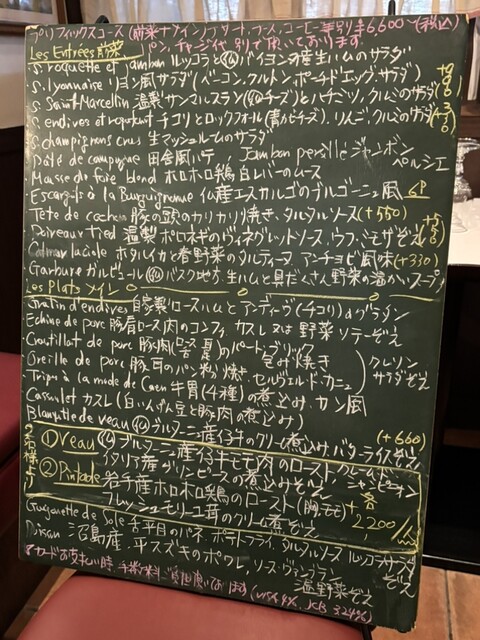 プリフィックスコース (前菜 メイン デザート コーヒー等 別) ¥6,600- (税込)
パン、チャージ代 別で頂いております。
Les Entrées 前菜
S. roquette et jambon ルッコラと仏バイヨンヌ産生ハムのサラダ
S. lyonnaise リヨン風サラダ (ベーコン、クルトン、ポーチドエッグ、サラダ)
S. Saint Marcellin 温製サンマルスラン (仏チーズ) とハチミツ、クルミのサラダ
S. endives et roquefort チコリとロックフォール (青カビチーズ)、りんご、クルミのサラダ
S. champignons crus 生マッシュルームのサラダ
Pâté de campagne 田舎風パテ Jambon persillé ジャンボン ペルシエ
Mousse de foie blond ホロホロ鶏白レバーのムース
Escargots à la Bourguignonne 仏産エスカルゴのブルゴーニュ風 6P
Tête de cochon 豚の頭のカリカリ焼き、タルタルソース (+550)
Poireaux tied 温製ポロネギのヴィネグレットソース、ウフ、ミモザぞえ (+550)
Calmar luciole ホタルイカと春野菜のタルティーヌ アンチョビ風味 (+330)
Garbure ガルビュール 仏バスク地方 生ハムと具だくさん野菜の温かいスープ
Les Plats メイン
Gratin d'endives 自家製ロースハムとアンディーヴ (チコリ) のグラタン
Echine de porc 豚肩ロース肉のコンフィ カスレ又は野菜ソテーぞえ
Croutillot de porc 豚肉のパートブリック包み焼き
Oreille de porc 豚耳のパン粉焼き、セルヴェル・ド・カニュ
クレソンサラダぞえ
Tripes à la mode de Caen 牛胃 (4種) の煮込み カン風
Cassoulet カスレ (白いんげん豆と豚肉の煮込み)
Blanquette de veau 仏ブルターニュ産仔牛のクリーム煮込み、バターライスぞえ (+660)
2名様より
① Veau 仏ブルターニュ産仔牛モモ肉のロースト、クレーム・ド・シャンピニオン
イタリア産グリンピースの煮込みぞえ
② Pintade 岩手産ホロホロ鶏のロースト (胸、モモ)
フレッシュモリーユ茸のクリーム煮ぞえ
各+2200/1人
Goujonette de Sole 舌平目のパネ、ポテトフライ、タルタルソース ルッコラサラダぞえ
Poisson 沼島産、平スズキのポワレ、ソース・ヴァンブラン 温野菜ぞえ
※カードお支払い時、手数料ご負担願っております (VISA 4%、JCB 3.24%)